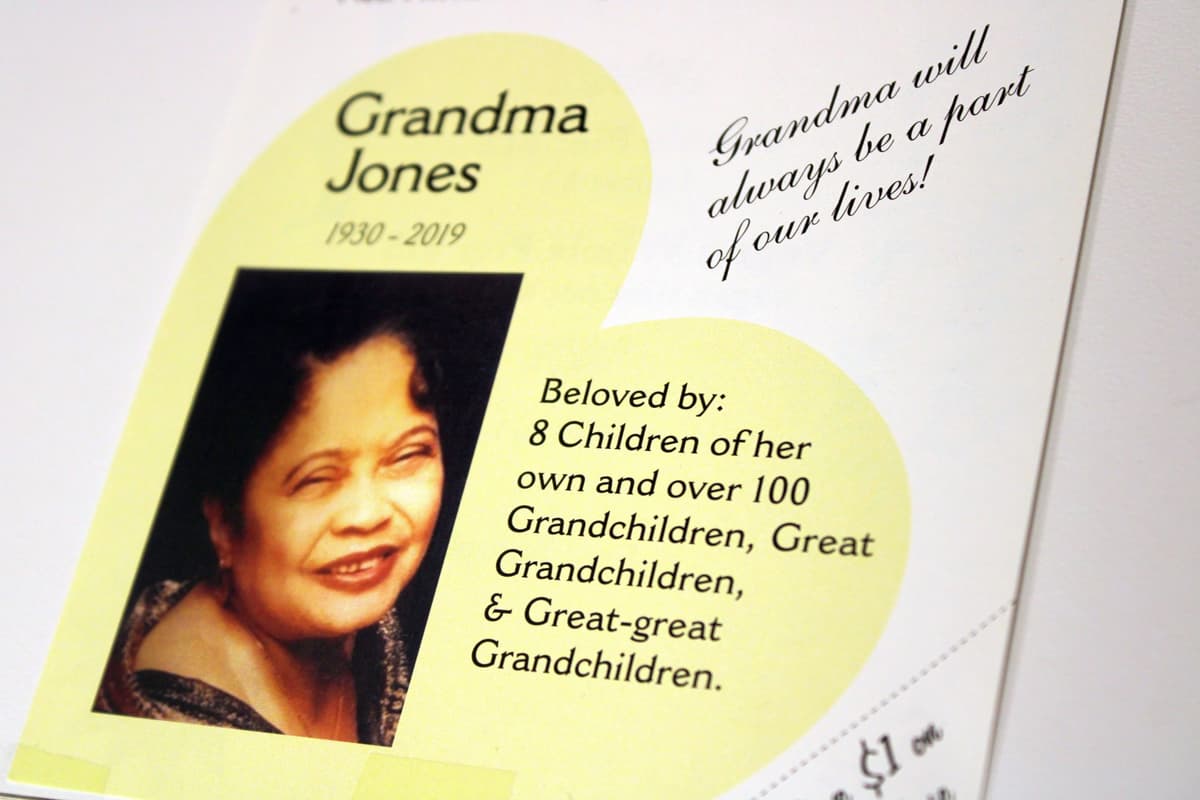 Grandma
Jones
1930 - 2019
Grandma will
always be a part
of our lives!
Beloved by:
8 Children of her
own and over 100
Grandchildren, Great
Grandchildren,
& Great-great
Grandchildren.
$1 on